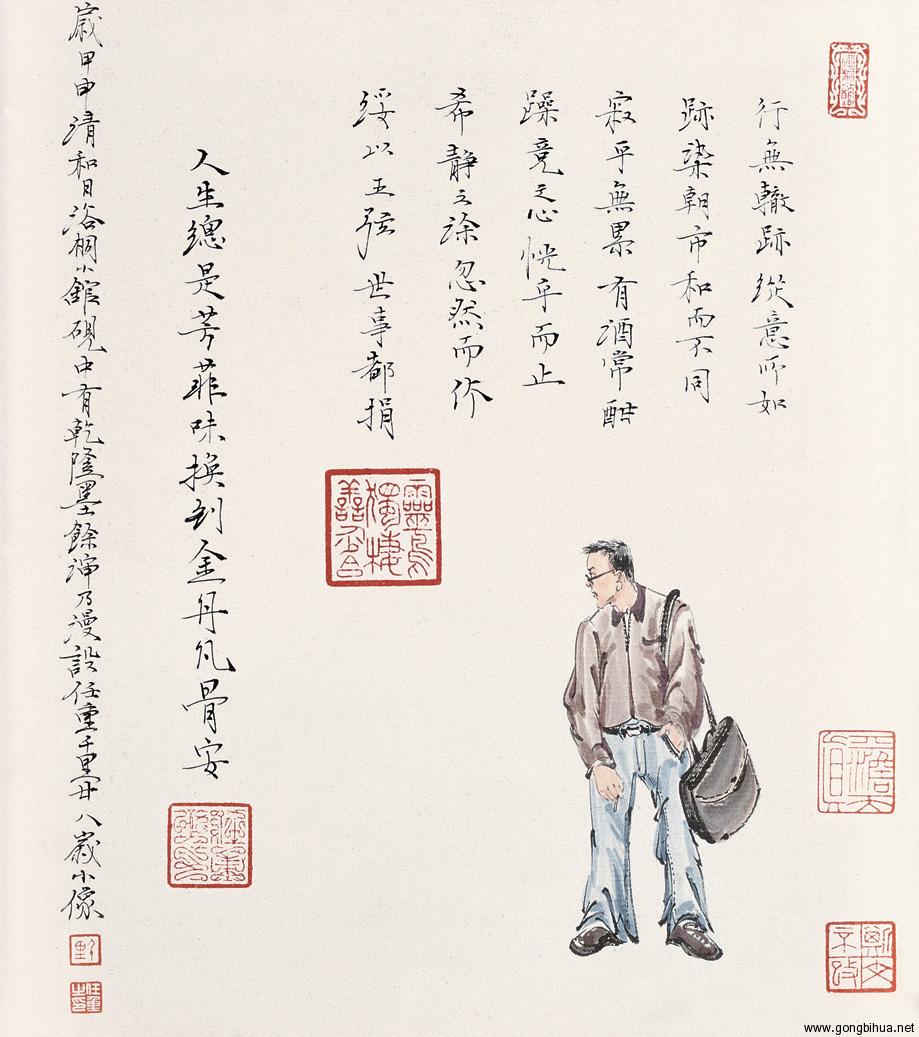 行無轍跡從意所如
跡染朝市和而不同
寂乎無累有酒常酣
躁競之心恍乎而止
希靜之塗忽然而作
綏以五弦世事都捐
靈鳥獨棲
人生總是芳菲味換到金丹凡骨安
歲甲申清和月浴桐小館硯中有乾隆墨餘瀋乃漫設任重千里廿八歲小像
任重
www.gongbihua.net